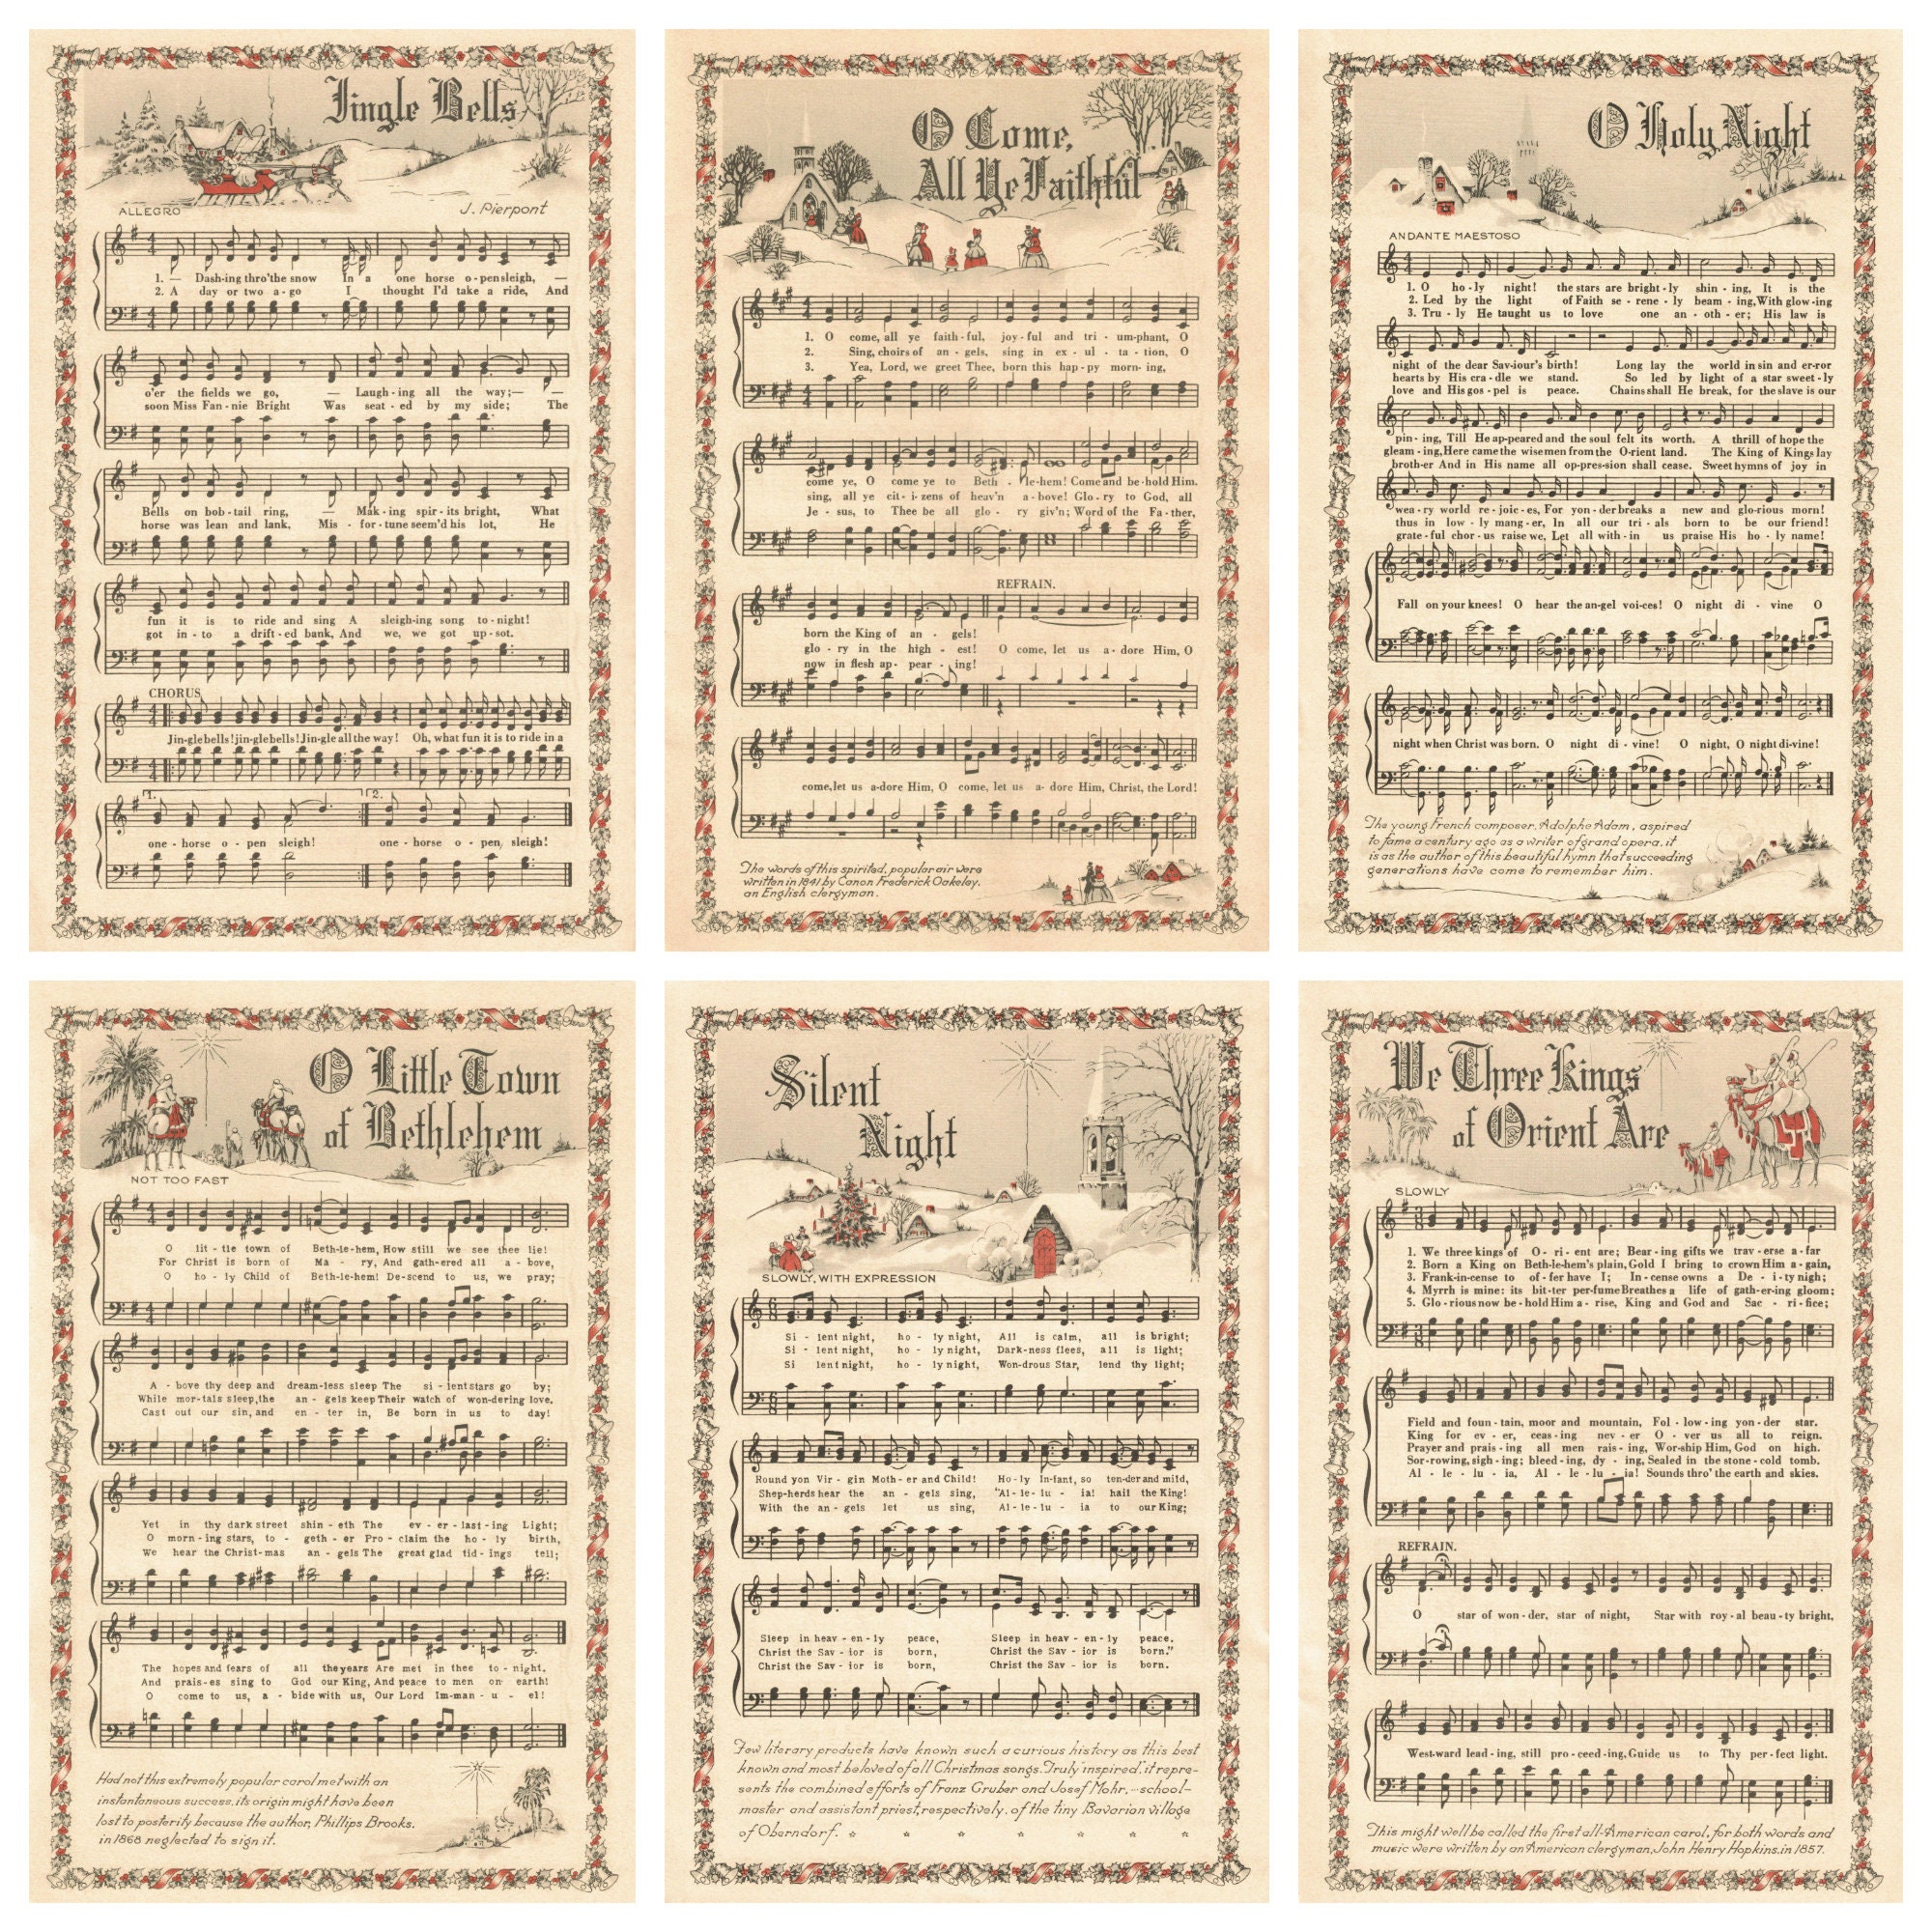 Jingle Bells
ALLEGRO J. Pierpont
1. — Dash-ing thro' the snow In a one horse o-pen sleigh, —
2. A day or two a-go I thought I'd take a ride, And
o'er the fields we go, — Laugh-ing all the way; — —
soon Miss Fan-nie Bright Was seat-ed by my side; The
Bells on bob-tail ring, — Mak-ing spir-its bright, What
horse was lean and lank, Mis-for-tune seem'd his lot, He
fun it is to ride and sing A sleigh-ing song to-night!
got in-to a drift-ed bank, And we, we got up-sot.
CHORUS
Jin-gle bells! jin-gle bells! Jin-gle all the way! Oh, what fun it is to ride in a
1. 2.
one-horse o-pen sleigh! one-horse o-pen sleigh!
O Come,
All Ye Faithful
1. O come, all ye faith-ful, joy-ful and tri-um-phant, O
2. Sing, choirs of an-gels, sing in ex-ul-ta-tion, O
3. Yea, Lord, we greet Thee, born this hap-py morn-ing,
come ye, O come ye to Beth-le-hem! Come and be-hold Him.
sing, all ye cit-i-zens of heav'n a-bove! Glo-ry to God, all
Je-sus, to Thee be all glo-ry giv'n; Word of the Fa-ther,
REFRAIN.
born the King of an-gels!
glo-ry in the high-est! O come, let us a-dore Him, O
now in flesh ap-pear-ing!
come, let us a-dore Him, O come, let us a-dore Him, Christ, the Lord!
The words of this spirited, popular air were
written in 1841 by Canon Frederick Oakeley,
an English clergyman.
O Holy Night
ANDANTE MAESTOSO
1. O ho-ly night! the stars are bright-ly shin-ing, It is the
2. Led by the light of Faith se-rene-ly beam-ing, With glow-ing
3. Tru-ly He taught us to love one an-oth-er; His law is
night of the dear Sav-iour's birth! Long lay the world in sin and er-ror
hearts by His cra-dle we stand. So led by light of a star sweet-ly
love and His gos-pel is peace. Chains shall He break, for the slave is our
pin-ing, Till He ap-peared and the soul felt its worth. A thrill of hope the
gleam-ing, Here came the wise men from the O-rient land. The King of Kings lay
broth-er And in His name all op-pres-sion shall cease. Sweet hymns of joy in
wea-ry world re-joic-es, For yon-der breaks a new and glo-rious morn!
thus in low-ly mang-er, In all our tri-als born to be our friend!
grate-ful chor-us raise we, Let all with-in us praise His ho-ly name!
Fall on your knees! O hear the an-gel voi-ces! O night di-vine O
night when Christ was born. O night di-vine! O night, O night di-vine!
The young French composer, Adolphe Adam, aspired
to fame a century ago as a writer of grand opera. it
is as the author of this beautiful hymn that succeeding
generations have come to remember him.
O Little Town
of Bethlehem
NOT TOO FAST
O lit-tle town of Beth-le-hem, How still we see thee lie!
For Christ is born of Ma-ry, And gath-ered all a-bove,
O ho-ly Child of Beth-le-hem! De-scend to us, we pray;
A-bove thy deep and dream-less sleep The si-lent stars go by;
While mor-tals sleep, the an-gels keep Their watch of won-dering love.
Cast out our sin, and en-ter in, Be born in us to day!
Yet in thy dark street shin-eth The ev-er-last-ing Light;
O morn-ing stars, to-geth-er Pro-claim the ho-ly birth,
We hear the Christ-mas an-gels The great glad tid-ings tell;
The hopes and fears of all the years Are met in thee to-night.
And prais-es sing to God our King, And peace to men on earth!
O come to us, a-bide with us, Our Lord Im-man-u-el!
Had not this extremely popular carol met with an
instantaneous success, its origin might have been
lost to posterity because the author, Phillips Brooks,
in 1868 neglected to sign it.
Silent
Night
SLOWLY, WITH EXPRESSION
Si-lent night, ho-ly night, All is calm, all is bright;
Si-lent night, ho-ly night, Dark-ness flees, all is light;
Si lent night, ho-ly night, Won-drous Star, lend thy light;
Round yon Vir-gin Moth-er and Child! Ho-ly In-fant, so ten-der and mild,
Shep-herds hear the an-gels sing, "Al-le-lu-ia! hail the King!
With the an-gels let us sing, Al-le-lu-ia to our King;
Sleep in heav-en-ly peace, Sleep in heav-en-ly peace.
Christ the Sav-ior is born, Christ the Sav-ior is born."
Christ the Sav-ior is born, Christ the Sav-ior is born.
Few literary products have known such a curious history as this best
known and most beloved of all Christmas songs. Truly inspired, it repre-
sents the combined efforts of Franz Gruber and Josef Mohr, --- school-
master and assistant priest, respectively, of the tiny Bavarian village
of Oberndorf.
We Three Kings
of Orient Are
SLOWLY
1. We three kings of O-ri-ent are; Bear-ing gifts we trav-erse a-far
2. Born a King on Beth-le-hem's plain, Gold I bring to crown Him a-gain,
3. Frank-in-cense to of-fer have I; In-cense owns a De-i-ty nigh;
4. Myrrh is mine: its bit-ter per-fume Breathes a life of gath-er-ing gloom;
5. Glo-rious now be-hold Him a-rise, King and God and Sac-ri-fice;
Field and foun-tain, moor and mountain, Fol-low-ing yon-der star.
King for ev-er, ceas-ing nev-er O-ver us all to reign.
Prayer and prais-ing all men rais-ing, Wor-ship Him, God on high.
Sor-rowing, sigh-ing; bleed-ing, dy-ing, Sealed in the stone-cold tomb.
Al-le-lu-ia, Al-le-lu-ia! Sounds thro' the earth and skies.
REFRAIN.
O star of won-der, star of night, Star with roy-al beau-ty bright,
West-ward lead-ing, still pro-ceed-ing, Guide us to Thy per-fect light.
This might well be called the first all-American carol, for both words and
music were written by an American clergyman, John Henry Hopkins, in 1857.